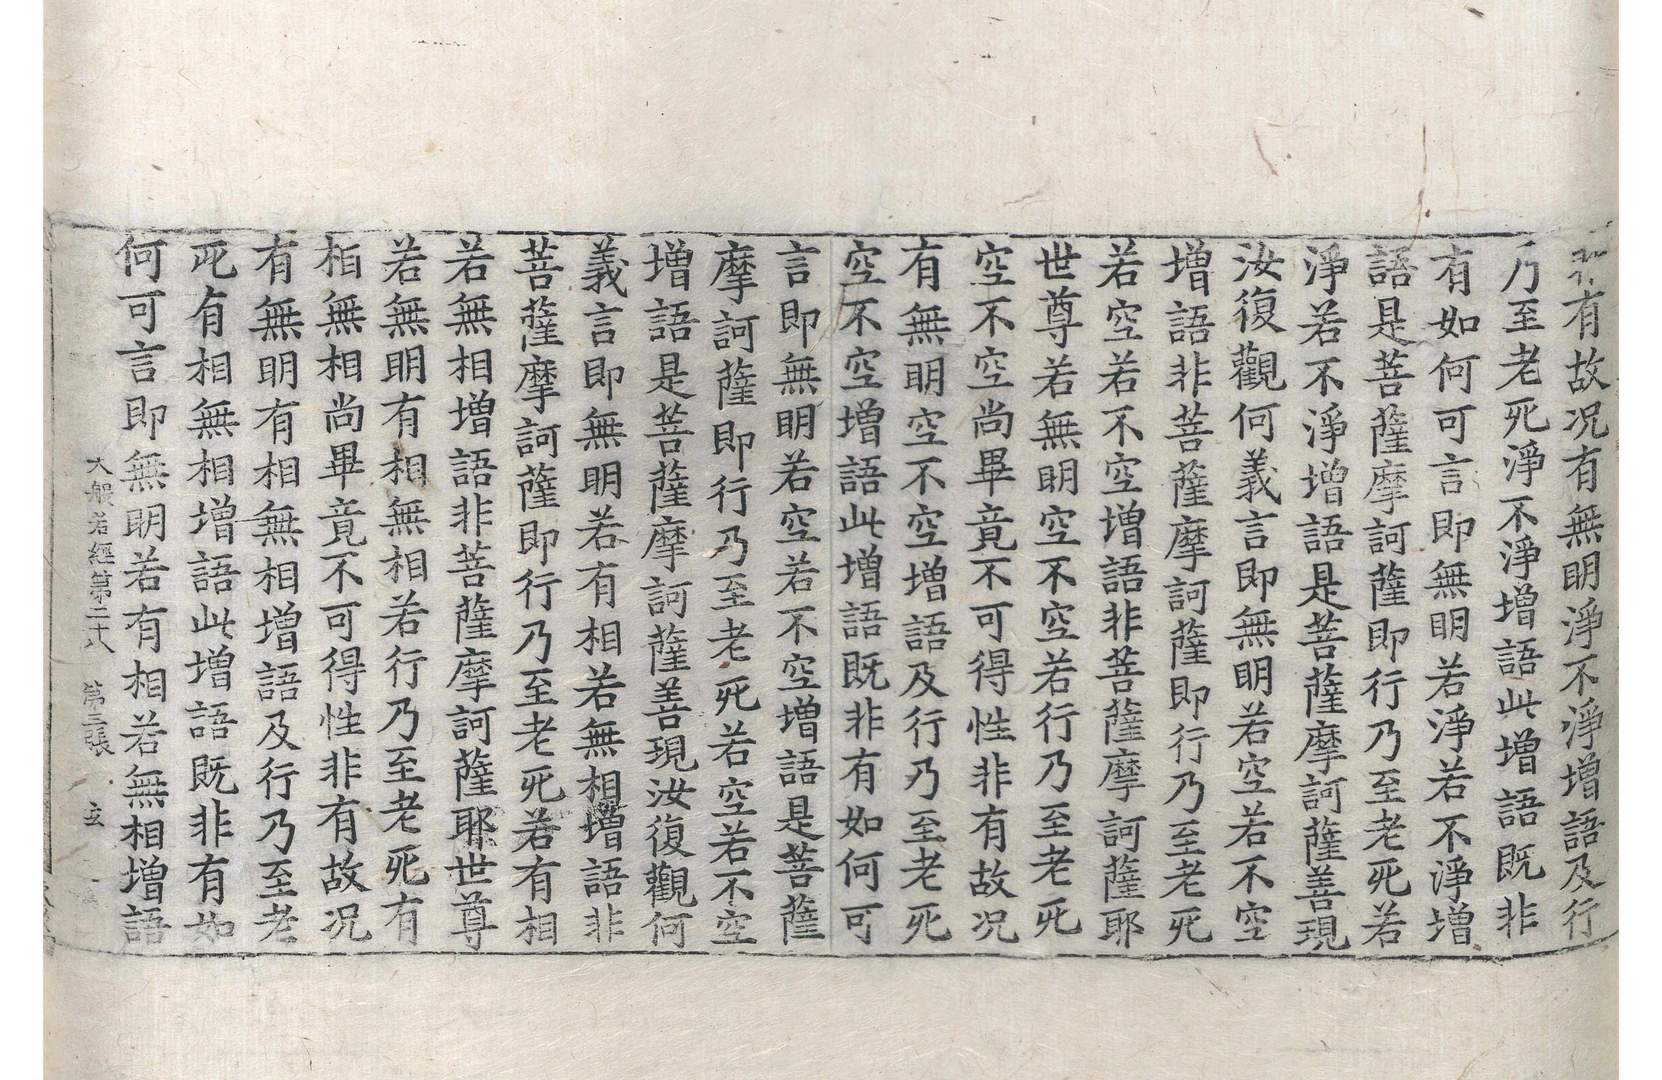 非有故况有無明淨不淨增語及行
乃至老死淨不淨增語此增語既非
有如何可言即無明若淨若不淨增
語是菩薩摩訶薩即行乃至老死若
淨若不淨增語是菩薩摩訶薩善現
汝復觀何義言即無明若空若不空
增語非菩薩摩訶薩即行乃至老死
若空若不空增語非菩薩摩訶薩耶
世尊若無明空不空若行乃至老死
空不空尚畢竟不可得性非有故况
有無明空不空增語及行乃至老死
空不空增語此增語既非有如何可
言即無明若空若不空增語是菩薩
摩訶薩即行乃至老死若空若不空
增語是菩薩摩訶薩善現汝復觀何
義言即無明若有相若無相增語非
菩薩摩訶薩即行乃至老死若有相
若無相增語非菩薩摩訶薩耶世尊
若無明有相無相若行乃至老死有
相無相尚畢竟不可得性非有故况
有無明有相無相增語及行乃至老
死有相無相增語此增語既非有如
何可言即無明若有相若無相增語
大般若經第二十八 第三張 玄